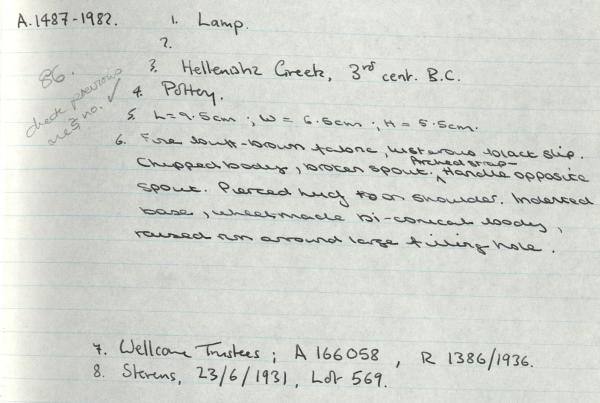 A.1487-1982.
1. Lamp.
2.
3. Hellenistic Greek, 3rd cent. B.C.
86.
check previous
reg no. ✓
4. Pottery.
5. L=9.5cm ; W = 6.5cm ; H = 5.5cm.
6. Fine buff-brown fabric, lustrous black slip.
Chipped body, broken spout. Arched strap- Handle opposite
spout. Pierced lug on shoulder. Indented
base, wheelmade bi-conical body,
raised rim around large filling hole.
7. Wellcome Trustees ; A 166058 , R 1386/1936.
8. Stevens, 23/6/1931, Lot 569.